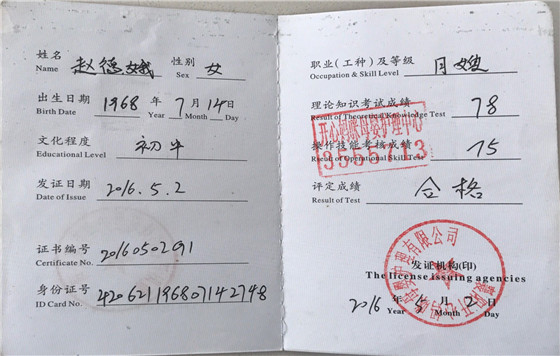 姓名 赵德娥 性别 女
Name Sex
出生日期 1968 年 7 月 14 日
Birth Date Year Month Day
文化程度 初中
Educational Level
发证日期 2016.5.2
Date of Issue
证书编号 2016050291
Certificate No.
身份证号 420621196807142748
ID Card No.
职业(工种)及等级 月嫂
Occupation & Skill Level
理论知识考试成绩 78
Result of Theoretical Knowledge Test
开心妈咪母婴护理中心
3555
操作技能考核成绩 75
Result of Operational Skill Test
评定成绩 合格
Result of Test
有限公司
发证机构(印)
The license issuing agencies
2016 年 5 月 2 日
Year Month Day